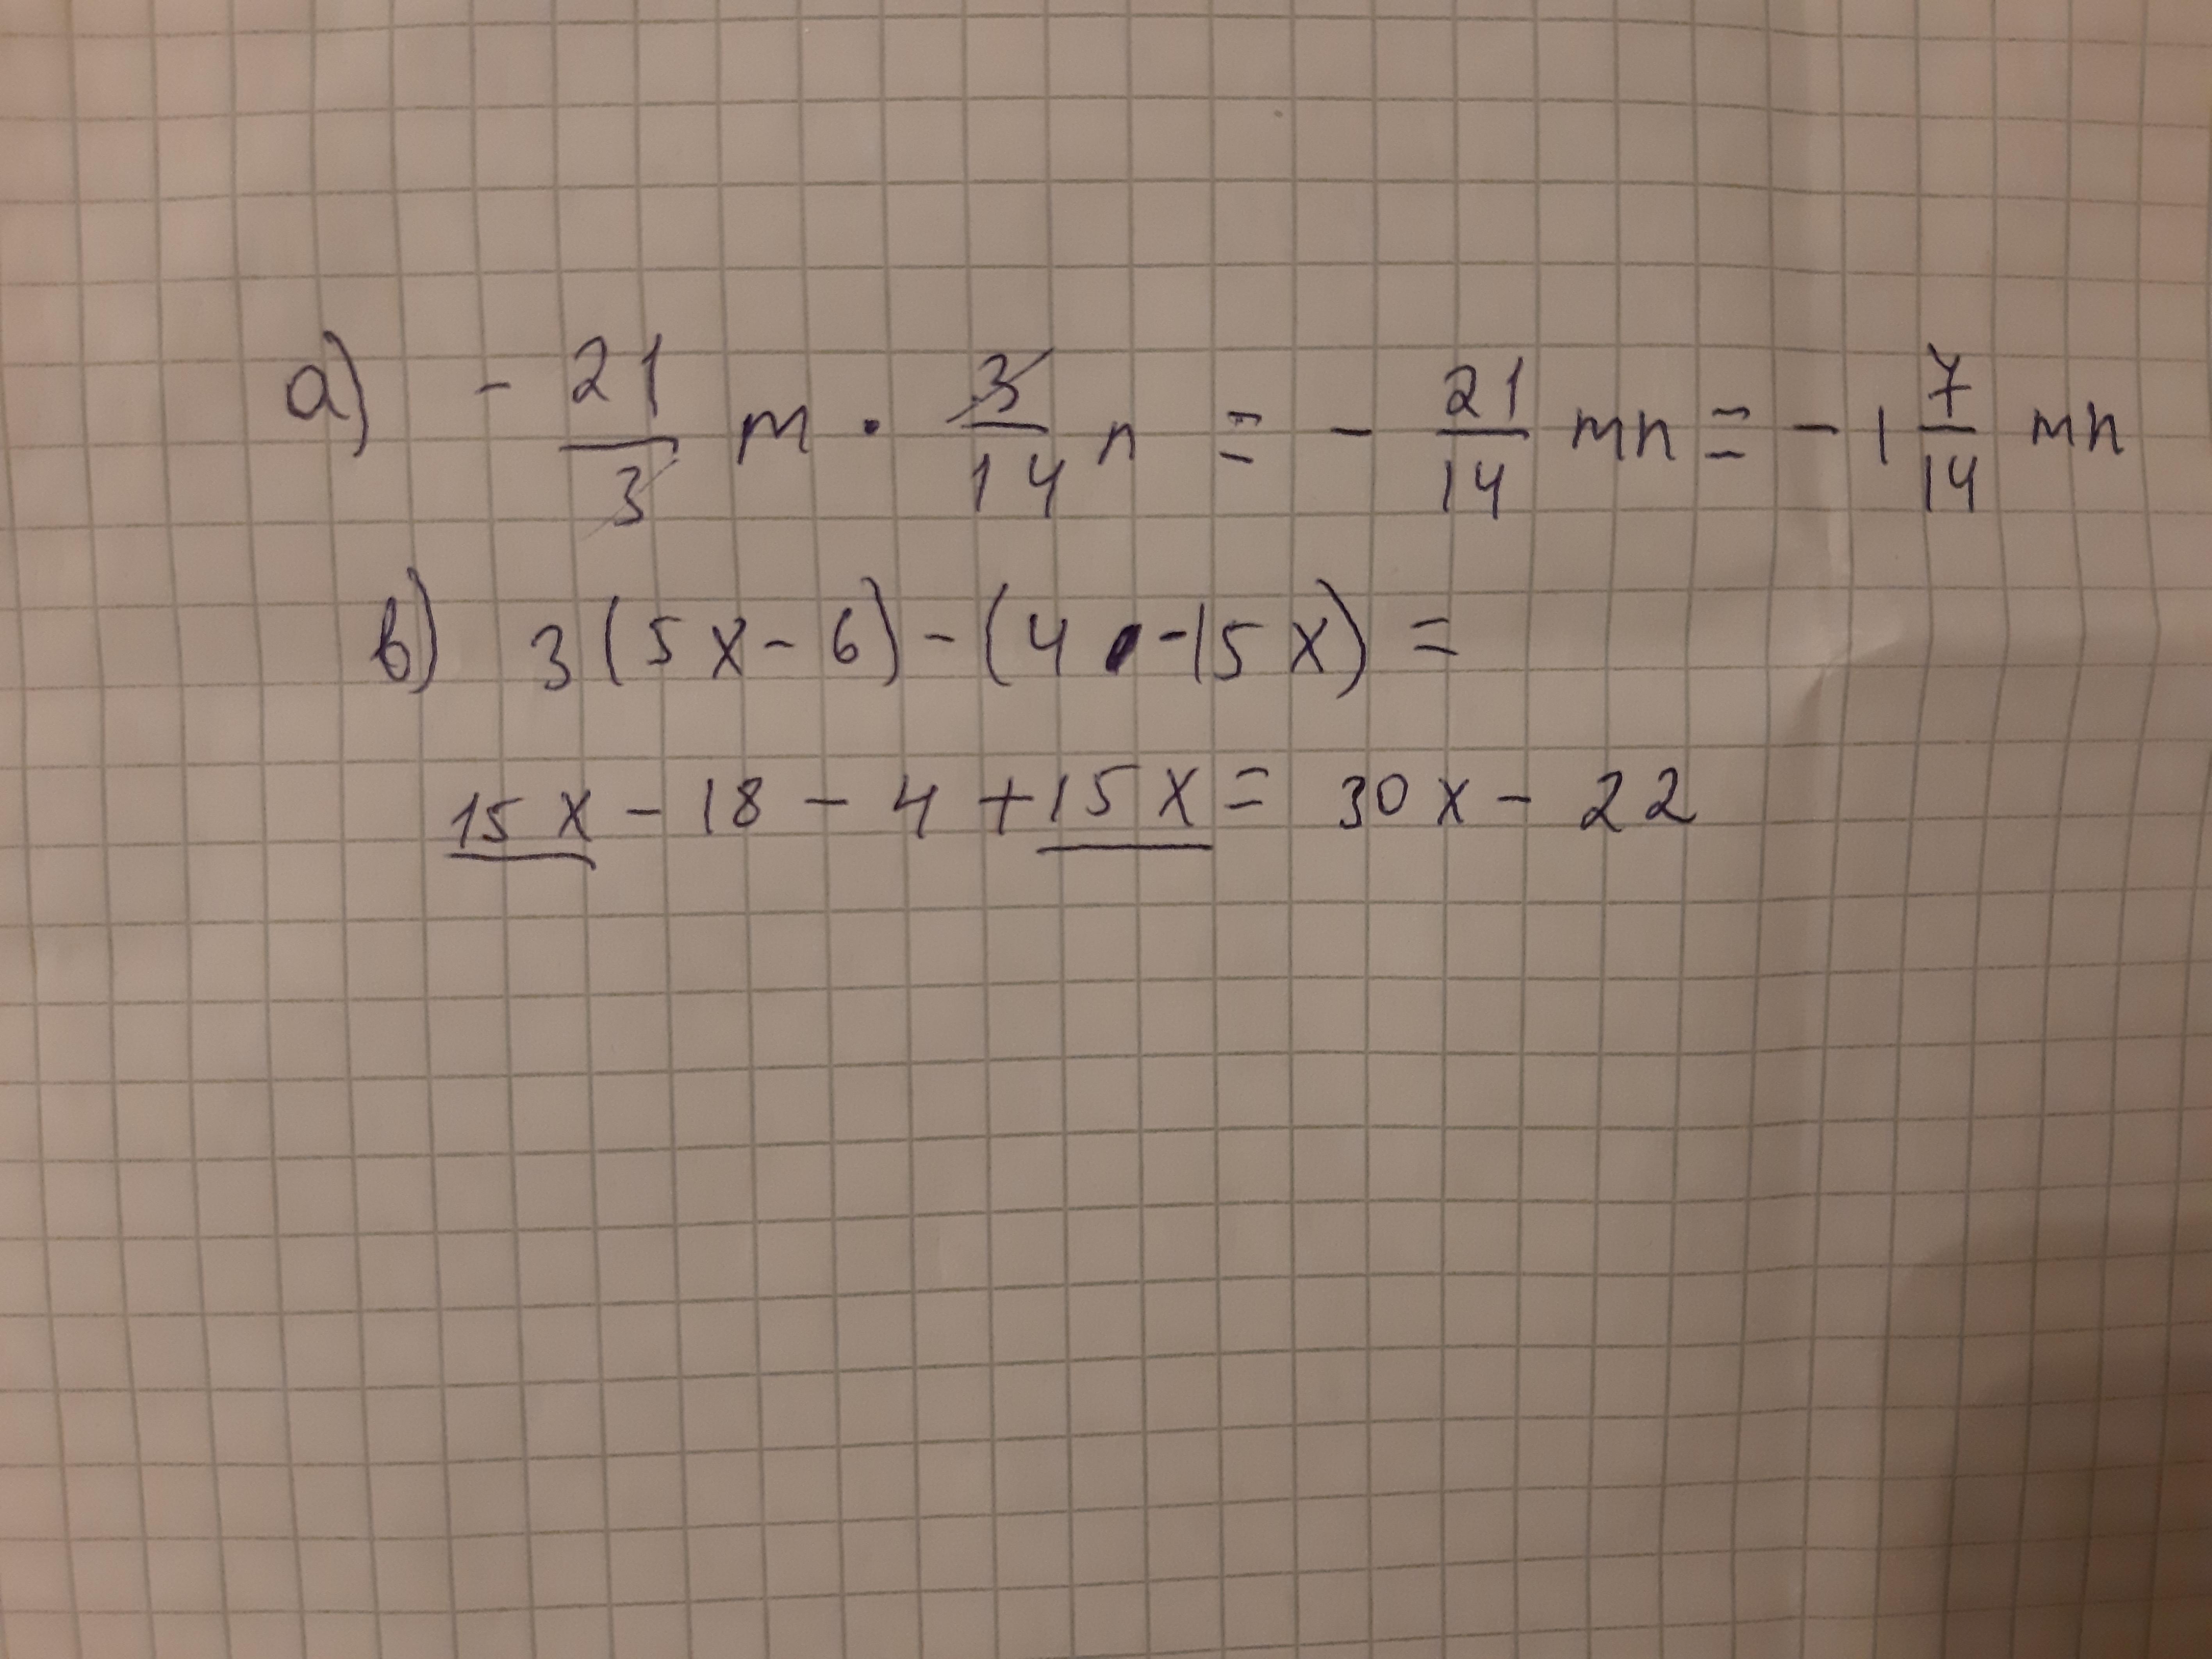 а) - 21/3 m · 3/14 n = - 21/14 mn = - 1 7/14 mn
в) 3(5x - 6) - (4 - 15x) =
15x - 18 - 4 + 15x = 30x - 22